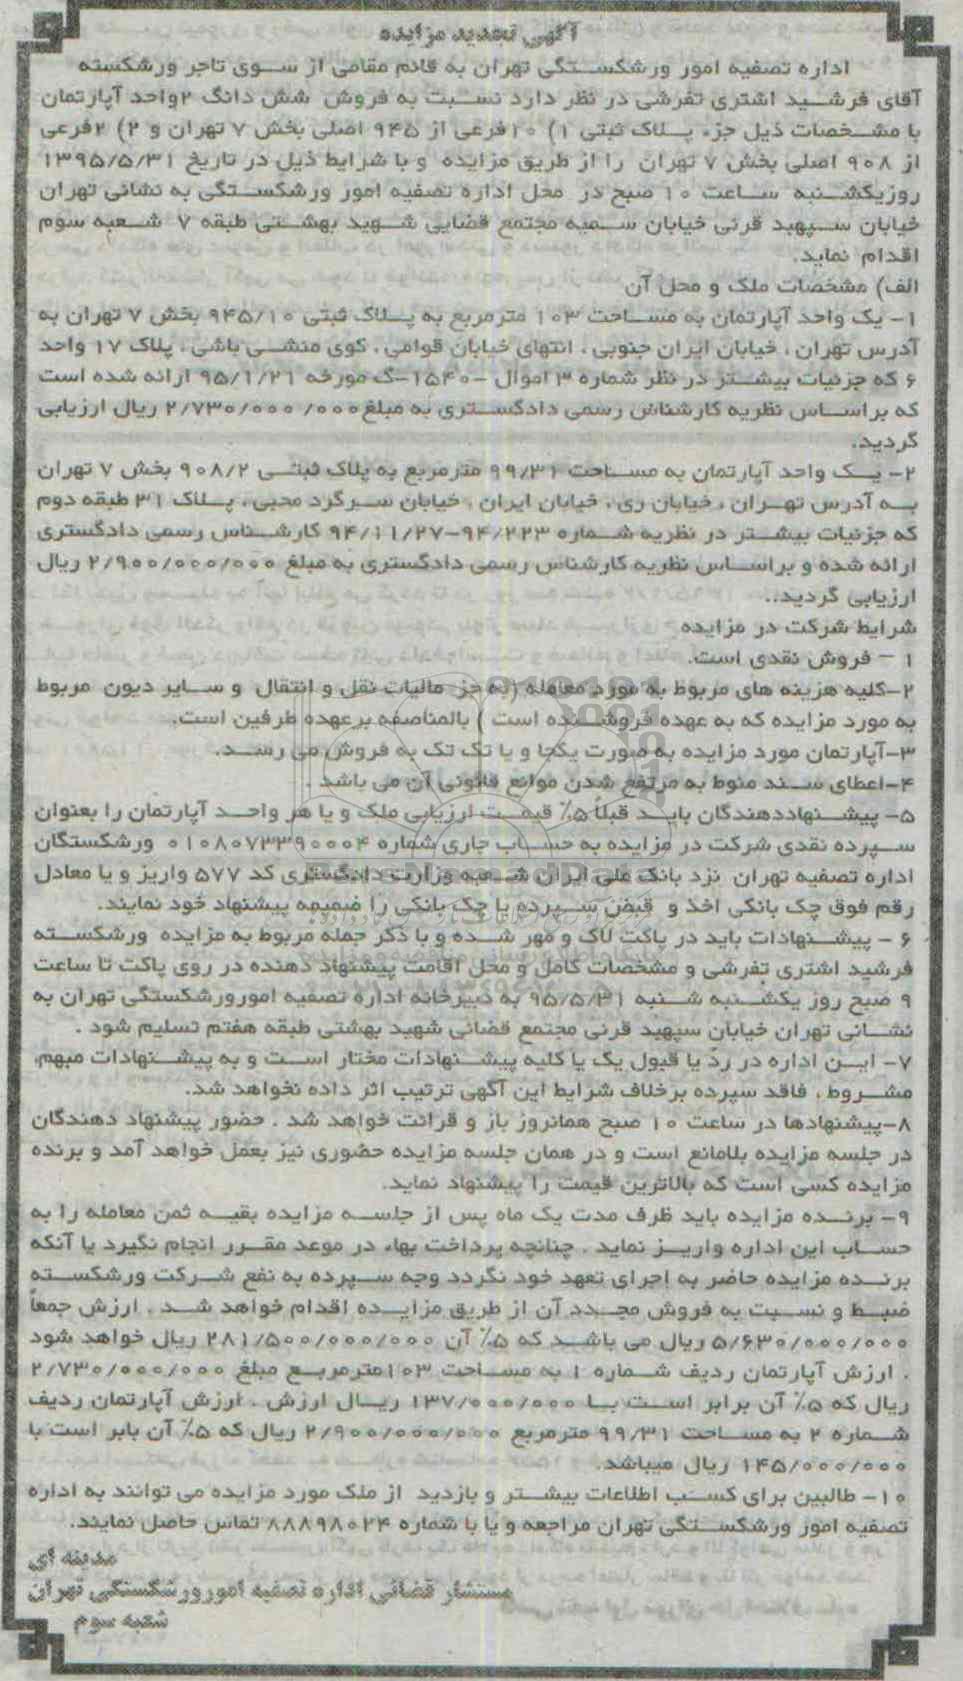 آگهی تجدید مزایده
اداره تصفیه امور ورشکستگی تهران به قائم مقامی از سوی تاجر ورشکسته
آقای فرشید اشتری تفرشی در نظر دارد نسبت به فروش شش دانگ ۲واحد آپارتمان
با مشخصات ذیل جزء پلاک ثبتی ۱) ۱۰فرعی از ۹۴۵ اصلی بخش ۷ تهران و ۲) ۲فرعی
از ۹۰۸ اصلی بخش ۷ تهران را از طریق مزایده و با شرایط ذیل در تاریخ ۱۳۹۵/۵/۳۱
روزیکشنبه ساعت ۱۰ صبح در محل اداره تصفیه امور ورشکستگی به نشانی تهران
خیابان سپهبد قرنی خیابان سمیه مجتمع قضایی شهید بهشتی طبقه ۷ شعبه سوم
اقدام نماید.
الف) مشخصات ملک و محل آن
۱- یک واحد آپارتمان به مساحت ۱۰۳ مترمربع به پلاک ثبتی ۹۴۵/۱۰ بخش ۷ تهران به
آدرس تهران ، خیابان ایران جنوبی ، انتهای خیابان قوامی ، کوی منشی باشی ، پلاک ۱۷ واحد
۶ که جزئیات بیشتر در نظر شماره ۳ اموال -۱۵۴۰-ک مورخه ۹۵/۱/۲۱ ارائه شده است
که براساس نظریه کارشناس رسمی دادگستری به مبلغ۲/۷۳۰/۰۰۰ /۰۰۰ ریال ارزیابی
گردید.
۲- یک واحد آپارتمان به مساحت ۹۹/۳۱ مترمربع به پلاک ثبتی ۹۰۸/۲ بخش ۷ تهران
به آدرس تهران ، خیابان ری ، خیابان ایران ، خیابان سرگرد محبی ، پلاک ۳۱ طبقه دوم
که جزئیات بیشتر در نظریه شماره ۹۴/۲۲۳-۹۴/۱۱/۲۷ کارشناس رسمی دادگستری
ارائه شده و براساس نظریه کارشناس رسمی دادگستری به مبلغ ۲/۹۰۰/۰۰۰/۰۰۰ ریال
ارزیابی گردید..
شرایط شرکت در مزایده
۱ - فروش نقدی است.
۲-کلیه هزینه های مربوط به مورد معامله (به جز مالیات نقل و انتقال و سایر دیون مربوط
به مورد مزایده که به عهده فروشنده است ) بالمناصفه برعهده طرفین است.
۳-آپارتمان مورد مزایده به صورت یکجا و یا تک تک به فروش می رسد.
۴-اعطای سند منوط به مرتفع شدن موانع قانونی آن می باشد .
۵- پیشنهاددهندگان باید قبلاً ۵٪ قیمت ارزیابی ملک و یا هر واحد آپارتمان را بعنوان
سپرده نقدی شرکت در مزایده به حساب جاری شماره ۰۱۰۸۰۷۳۳۹۰۰۰۴ ورشکستگان
اداره تصفیه تهران نزد بانک ملی ایران شعبه وزارت دادگستری کد ۵۷۷ واریز و یا معادل
رقم فوق چک بانکی اخذ و قبض سپرده یا چک بانکی را ضمیمه پیشنهاد خود نمایند.
۶ - پیشنهادات باید در پاکت لاک و مهر شده و با ذکر جمله مربوط به مزایده ورشکسته
فرشید اشتری تفرشی و مشخصات کامل و محل اقامت پیشنهاد دهنده در روی پاکت تا ساعت
۹ صبح روز یکشنبه شنبه ۹۵/۵/۳۱ به دبیرخانه اداره تصفیه امورورشکستگی تهران به
نشانی تهران خیابان سپهبد قرنی مجتمع قضائی شهید بهشتی طبقه هفتم تسلیم شود .
۷- این اداره در رد یا قبول یک یا کلیه پیشنهادات مختار است و به پیشنهادات مبهم،
مشروط ، فاقد سپرده برخلاف شرایط این آگهی ترتیب اثر داده نخواهد شد.
۸-پیشنهادها در ساعت ۱۰ صبح همانروز باز و قرائت خواهد شد . حضور پیشنهاد دهندگان
در جلسه مزایده بلامانع است و در همان جلسه مزایده حضوری نیز بعمل خواهد آمد و برنده
مزایده کسی است که بالاترین قیمت را پیشنهاد نماید.
۹- برنده مزایده باید ظرف مدت یک ماه پس از جلسه مزایده بقیه ثمن معامله را به
حساب این اداره واریز نماید . چنانچه پرداخت بهاء در موعد مقرر انجام نگیرد یا آنکه
برنده مزایده حاضر به اجرای تعهد خود نگردد وجه سپرده به نفع شرکت ورشکسته
ضبط و نسبت به فروش مجدد آن از طریق مزایده اقدام خواهد شد . ارزش جمعاً
۵/۶۳۰/۰۰۰/۰۰۰ ریال می باشد که ۵٪ آن ۲۸۱/۵۰۰/۰۰۰/۰۰۰ ریال خواهد شود
. ارزش آپارتمان ردیف شماره ۱ به مساحت ۱۰۳مترمربع مبلغ ۲/۷۳۰/۰۰۰/۰۰۰
ریال که ۵٪ آن برابر است با ۱۳۷/۰۰۰/۰۰۰ ریال ارزش . ارزش آپارتمان ردیف
شماره ۲ به مساحت ۹۹/۳۱ مترمربع ۲/۹۰۰/۰۰۰/۰۰۰ ریال که ۵٪ آن بابر است با
۱۴۵/۰۰۰/۰۰۰ ریال میباشد.
۱۰- طالبین برای کسب اطلاعات بیشتر و بازدید از ملک مورد مزایده می توانند به اداره
تصفیه امور ورشکستگی تهران مراجعه و یا با شماره ۸۸۸۹۸۰۲۴ تماس حاصل نمایند.
مدینه ای
مستشار قضائی اداره تصفیه امورورشکستگی تهران
شعبه سوم